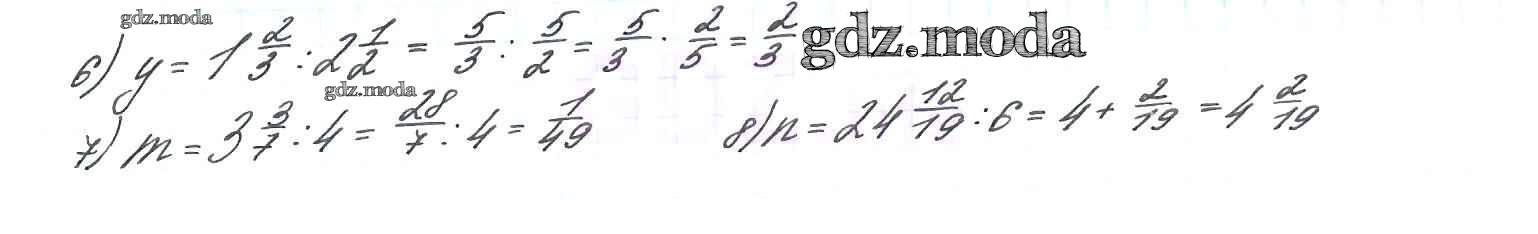 gdz.moda
6) y = 1 2/3 : 2 1/2 = 5/3 : 5/2 = 5/3 · 2/5 = 2/3 gdz.moda
gdz.moda
7) m = 3 3/7 : 4 = 28/7 : 4 = 1/49 8) n = 24 12/19 : 6 = 4 + 2/19 = 4 2/19